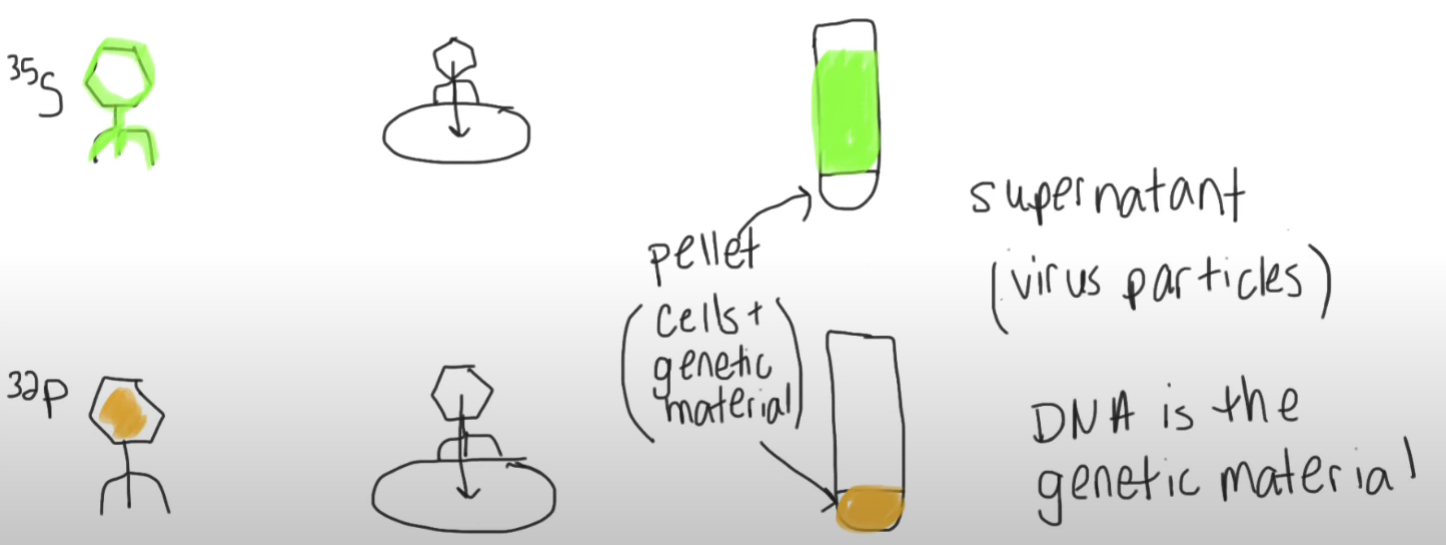 ³⁵S
supernatant
(virus particles)
pellet
(cells +
genetic
material)
³²P
DNA is the
genetic material